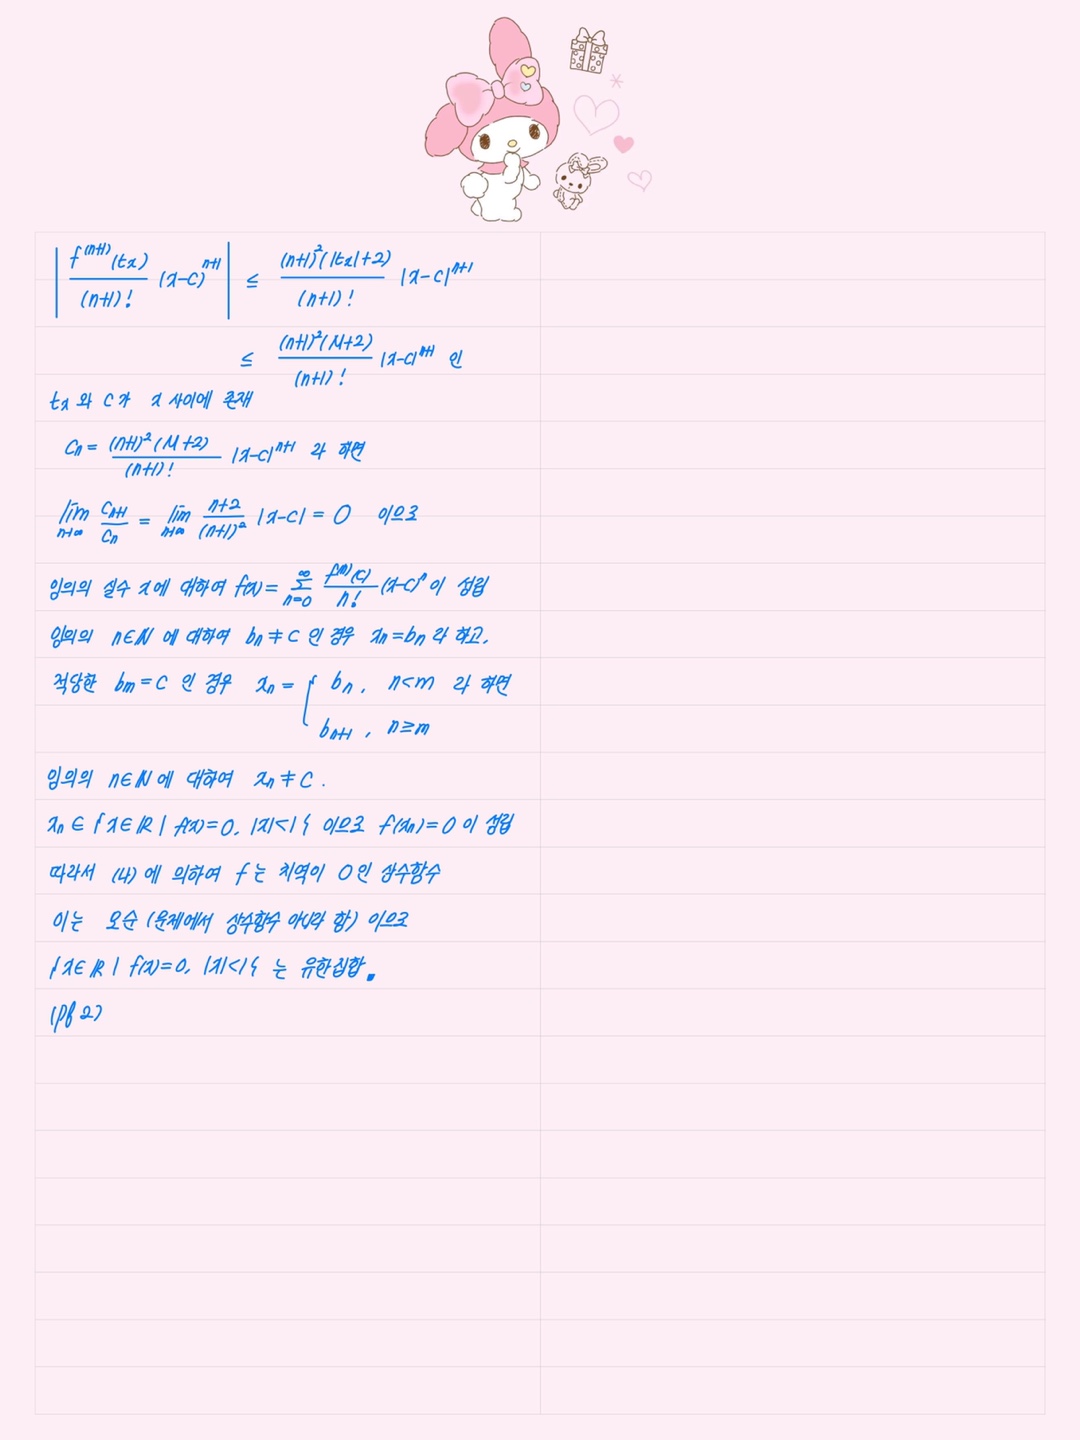 | f^(n+1)(tx) / (n+1)! (x-c)^n+1 | ≤ (n+1)²(|tx|+2) / (n+1)! |x-c|^n+1
≤ (n+1)²(M+2) / (n+1)! |x-c|^n+1 인
tx 와 c가 x 사이에 존재
Cn = (n+1)²(M+2) / (n+1)! |x-c|^n+1 라 하면
lim n→∞ Cn+1 / Cn = lim n→∞ n+2 / (n+1)² |x-c| = 0 이므로
임의의 실수 x에 대하여 f(x) = ∞ Σ n=0 f^(n)(c) / n! (x-c)^n 이 성립
임의의 n∈ℕ 에 대하여 bn ≠ c 인 경우 xn = bn 라 하고,
적당한 bm = c 인 경우 xn = { bn, n<m 라 하면
bn+1, n≥m
임의의 n∈ℕ에 대하여 xn ≠ c.
xn ∈ {x∈ℝ | f(x)=0, |x|<1} 이므로 f(xn)=0 이 성립
따라서 (나)에 의하여 f는 치역이 0인 상수함수
이는 모순 (문제에서 상수함수 아니라 함) 이므로
{x∈ℝ | f(x)=0, |x|<1} 는 유한집합.
(pf 2)